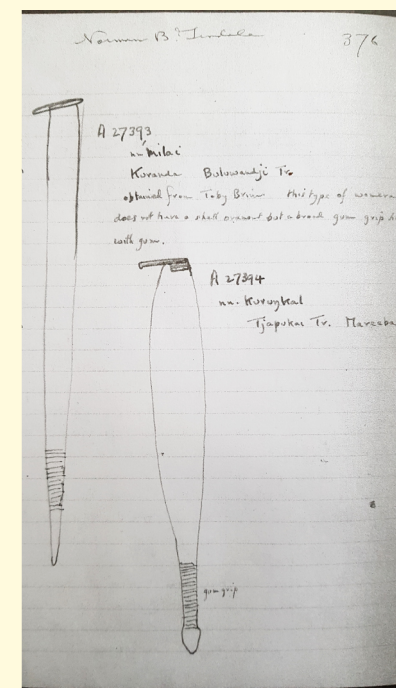 Norman B. Tindale
376
A 27393
nn. Milai
Kuranda Buluwandji Tr.
obtained from Toby Brian this type of womera
does not have a shell ornament but a broad gum grip
with gum.
A 27394
nn. Kurungkal
Tjapukai Tr. Mareeba
gum grip